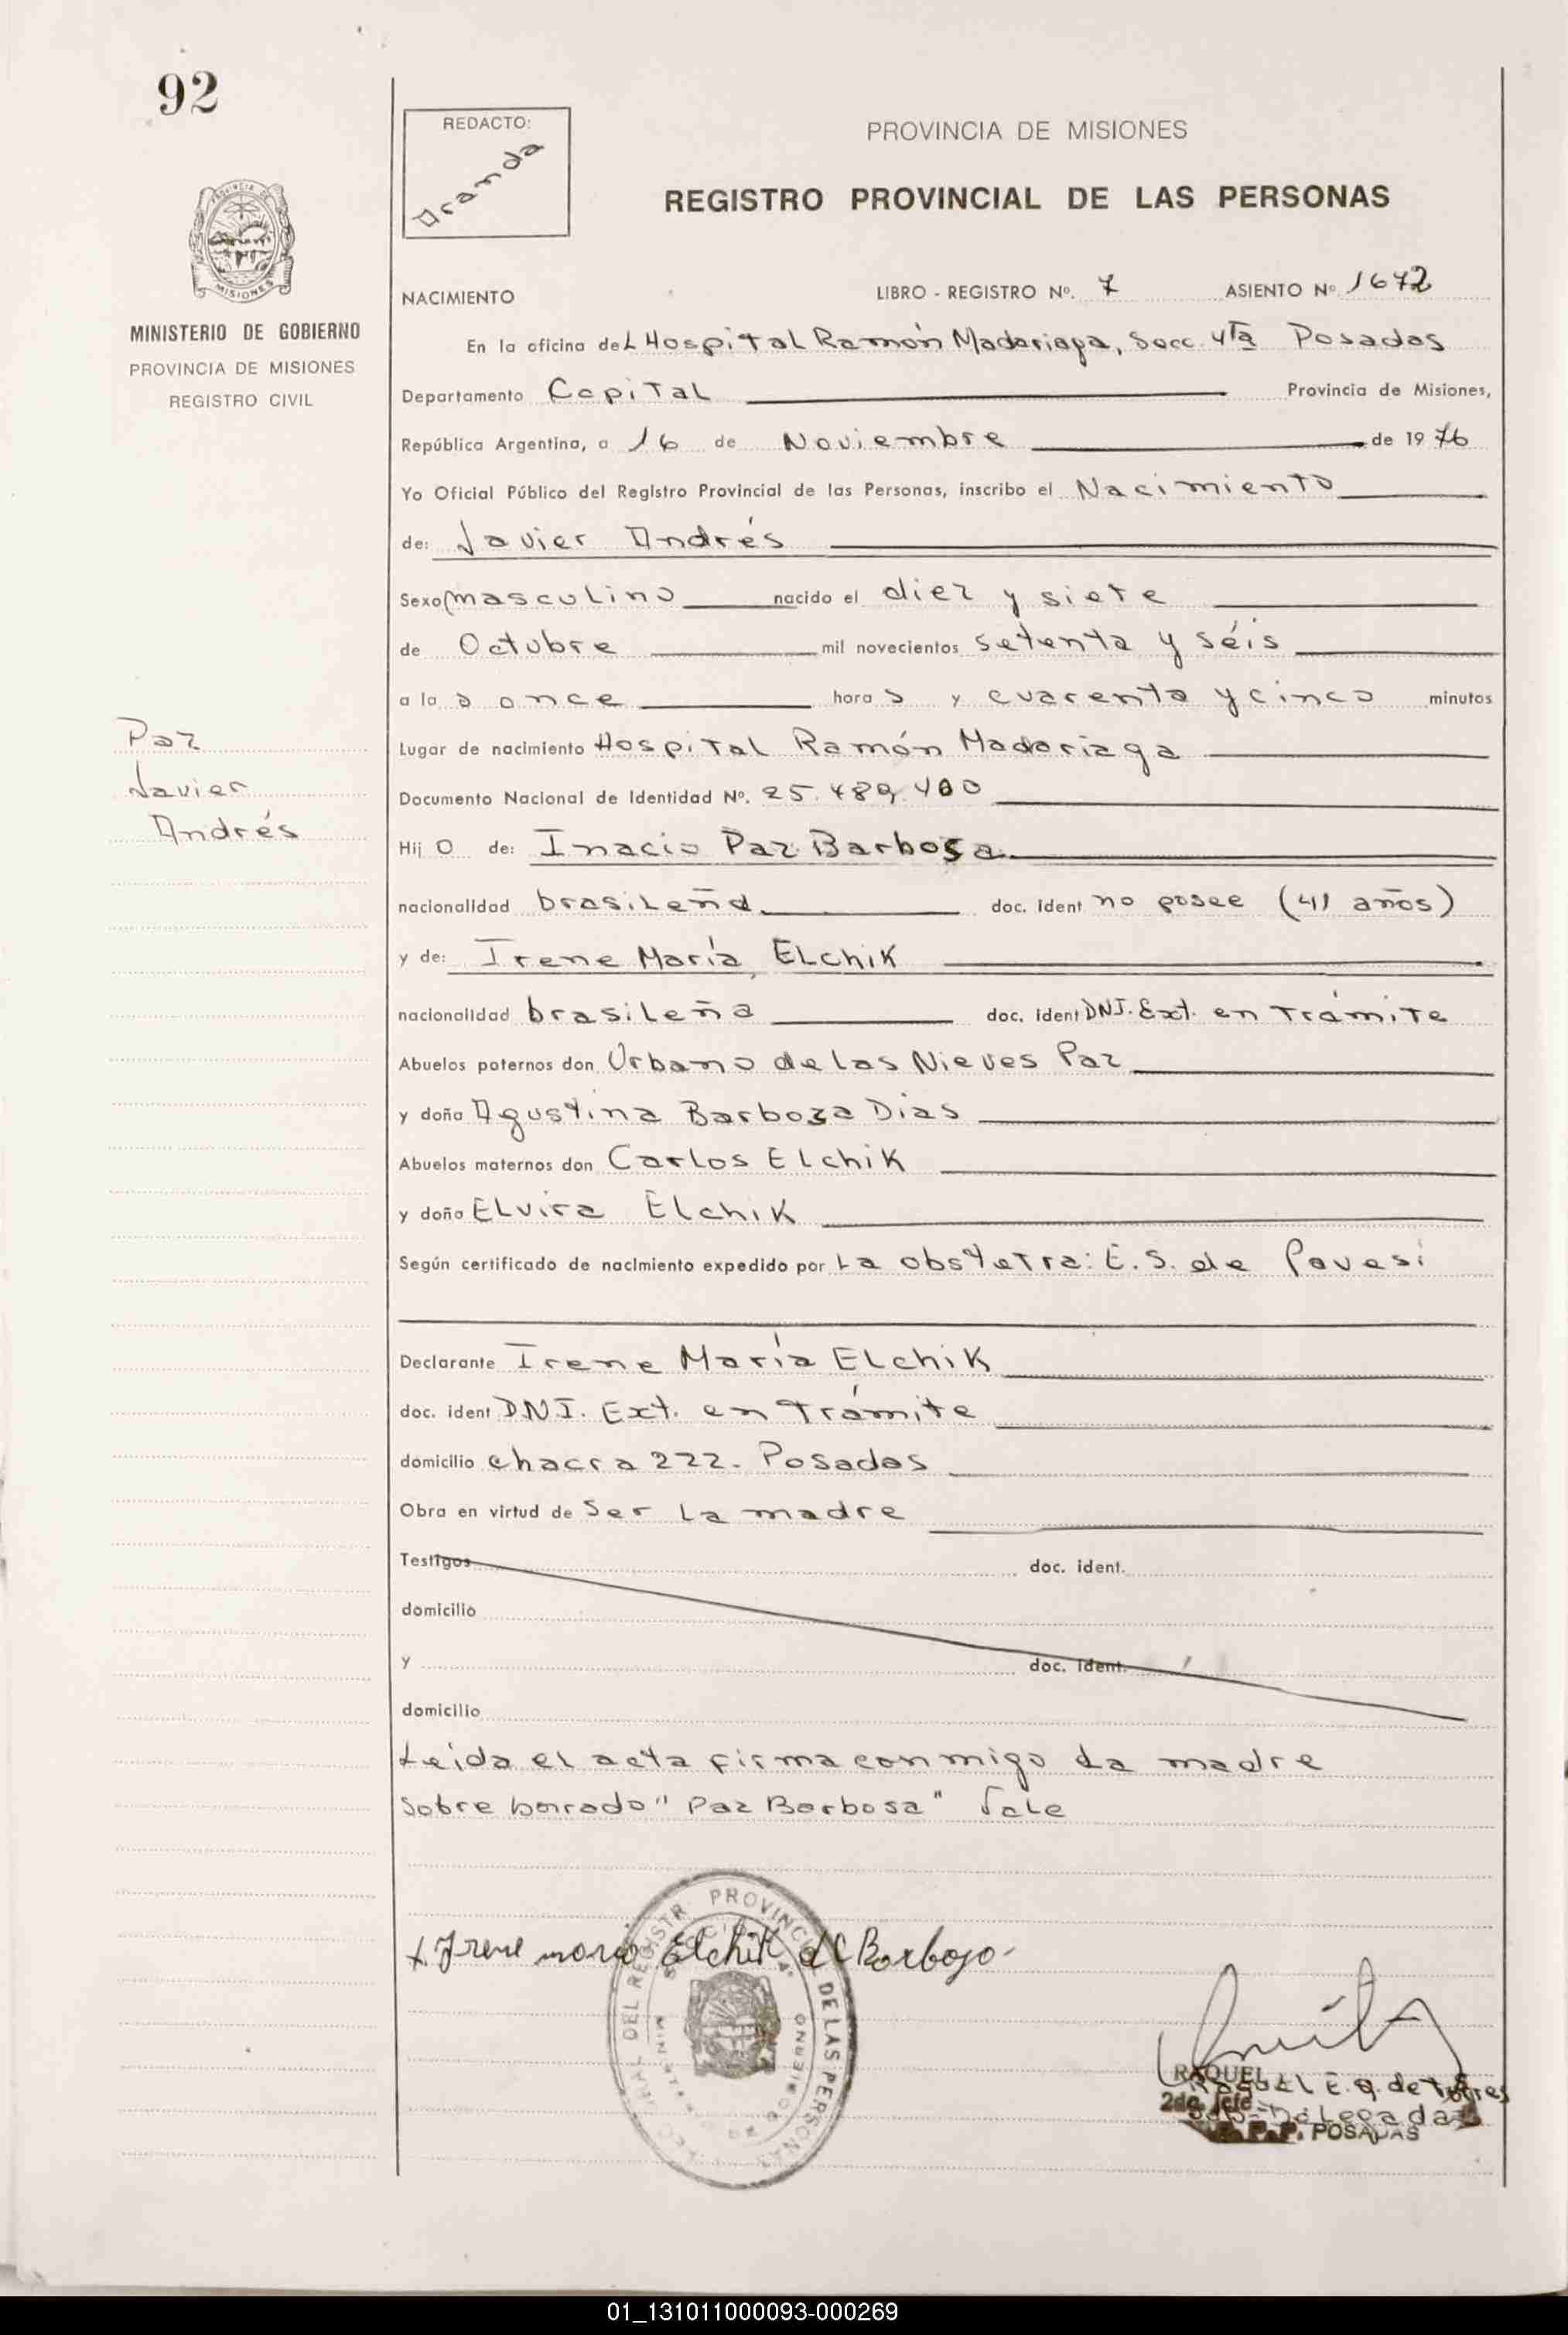 92
REDACTO:
Aranda
PROVINCIA DE MISIONES
REGISTRO PROVINCIAL DE LAS PERSONAS
MISIONES
MINISTERIO DE GOBIERNO
PROVINCIA DE MISIONES
REGISTRO CIVIL
NACIMIENTO LIBRO - REGISTRO Nº. 7 ASIENTO Nº 1672
En la oficina deL Hospital Ramón Madariaga, Secc. 4ta Posadas
Departamento Capital Provincia de Misiones,
República Argentina, a 16 de Noviembre de 1976
Yo Oficial Público del Registro Provincial de las Personas, inscribo el Nacimiento
de: Javier Andrés
Sexo masculino nacido el diez y siete
de Octubre mil novecientos setenta y séis
a la s once hora s y cuarenta y cinco minutos
Paz
Javier
Andrés
Lugar de nacimiento Hospital Ramón Madariaga
Documento Nacional de Identidad Nº. 25.489.400
Hij o de: Inacio Paz Barbosa
nacionalidad brasileña doc. ident no posee (41 años)
y de: Irene María Elchik
nacionalidad brasileña doc. ident DNI. Ext. en trámite
Abuelos paternos don Urbano de las Nieves Paz
y doña Agustina Barboza Dias
Abuelos maternos don Carlos Elchik
y doña Elvira Elchik
Según certificado de nacimiento expedido por La obstetra: E. S. de Pavesi
Declarante Irene María Elchik
doc. ident DNI. Ext. en trámite
domicilio chacra 222. Posadas
Obra en virtud de ser la madre
Testigos doc. ident.
domicilio
y doc. ident.
domicilio
Leida el acta firma conmigo La madre
Sobre borrado "Paz Barbosa" Vale
Irene maria Elchik de Barbojo
PROVINCIAL DE LAS PERSONAS
DEL REGISTR
RAQUEL E. Q. de Torres
2da. Jefe
Sub-Delegada
POSADAS
01_131011000093-000269